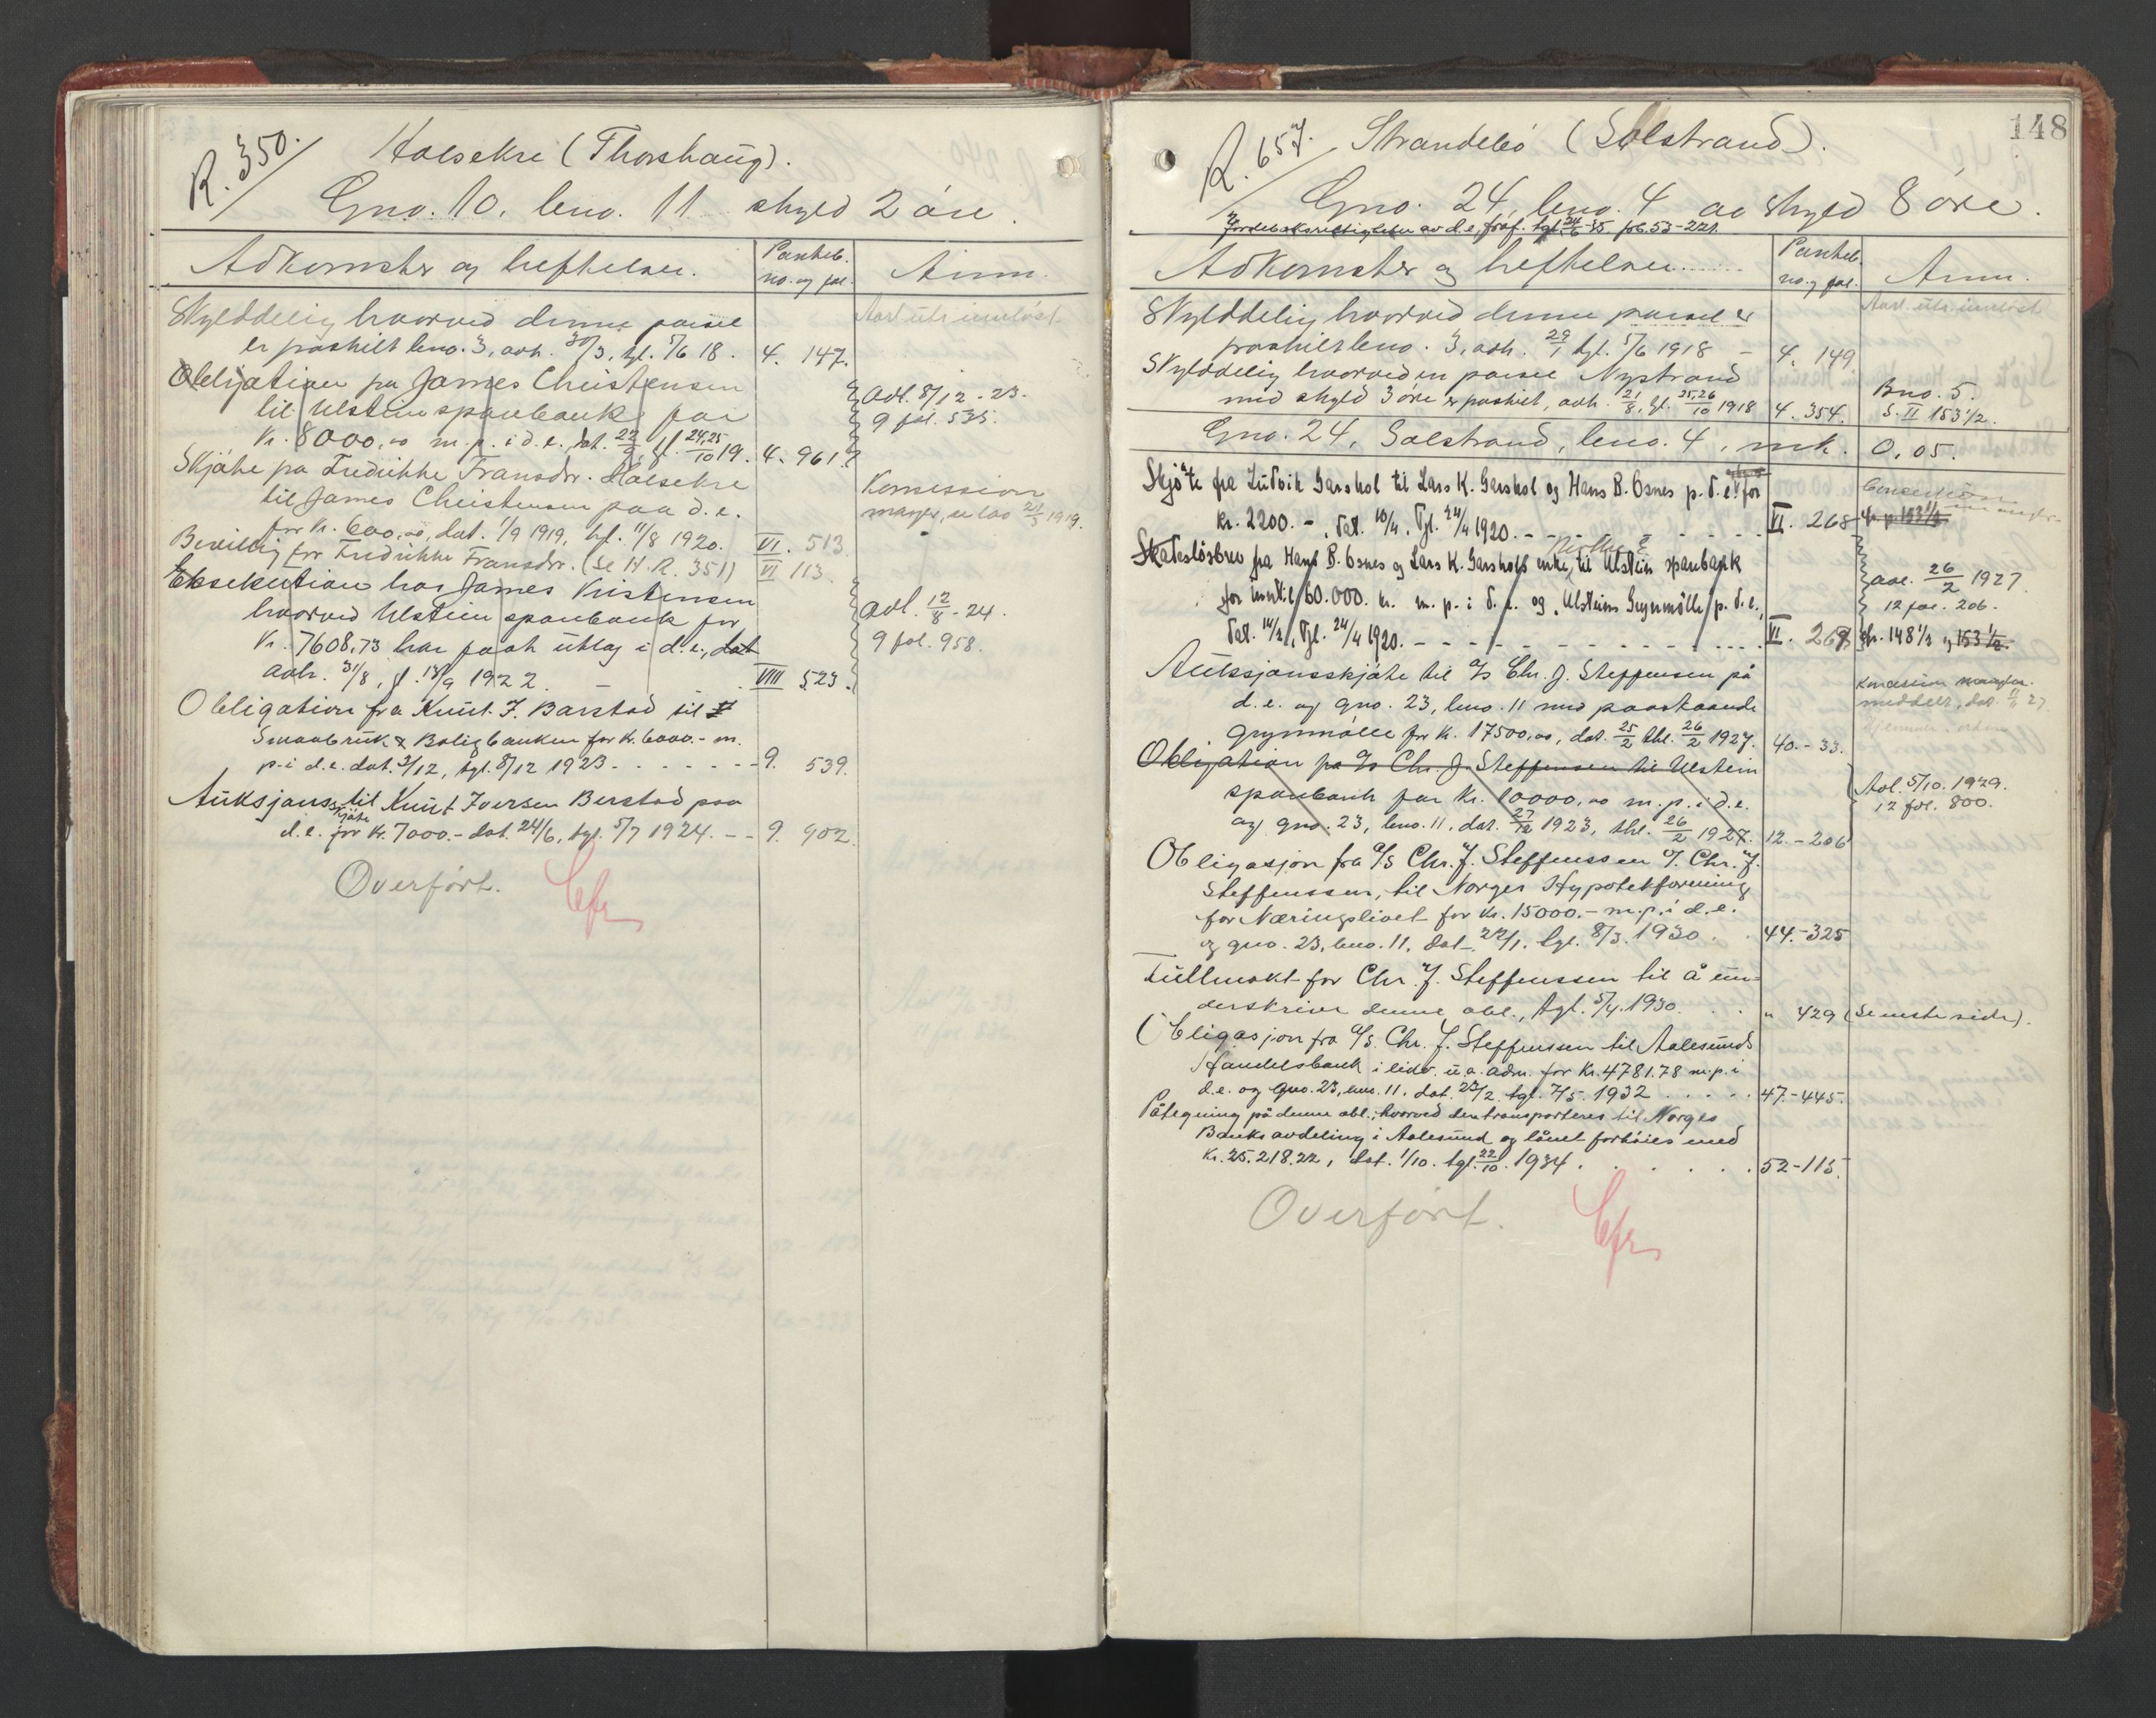 R. 350.
Holsekre (Thorshaug).
Gno. 10. bno. 11 skyld 2 øre.
Adkomster og heftelser. Panteb. no. og fol. Anm.
Skylddeling hvorved denne parsel
er fraskilt bno. 3, avh. 30/3, tgl. 5/6 18. 4. 147.
Obligation fra James Christensen
til Ulstein sparebank for
kr. 8000,00 m.p. i d.e. dat. 22/9, tgl. 24,25/10 19. 4. 961.
Avl. 8/12 - 23.
9 fol. 535.
Skjøte fra Fredrikke Fransdr. Holsekre
til James Christensen paa d.e.
for kr. 600,00, dat. 1/9 1919, tgl. 11/8 1920. VI. 513.
Konsession
Bevilling for Fredrikke Fransdr. (se H.R. 351) VI 113.
Eksekution hos James Kristensen
hvorved Ulstein sparebank for
kr. 7608,73 har faat utlæg i d.e., dat
avh. 31/8, tgl. 13/9 1922. VIII 523.
Avl. 12/8 - 24.
9 fol. 958.
Obligation fra Knut J. Barstad til
Smaabruk & Boligbanken for kr. 6000.- m.
p. i d.e. dat. 3/12, tgl. 8/12 1923 9. 539.
Auksjonsskjøte til Knut Iversen Berstad paa
d.e. for kr. 7000.- dat. 24/6, tgl. 5/7 1924. - - 9. 902.
Overført.
148
R. 657.
Strandebø (Solstrand).
Gno. 24, bno. 4 av skyld 8 øre.
Adkomster og heftelser Panteb. no. og fol. Anm.
Skylddeling hvorved denne parsel er
fraskilt bno. 3, avh. 29/1 tgl. 5/6 1918 - 4. 149
Skylddeling hvorved en parsel Nystrand
med skyld 3 øre er fraskilt, avh. 21/8, tgl. 25,26/10 1918 4. 354.
Bno. 5.
S. II 153 1/2.
Gno. 24, Solstrand, bno. 4, mk. 0,05.
Skjøte fra Ludvik Garshol til Lars K. Garshol og Hans B. Osnes p. d.e. for
kr. 2200.-, dat. 10/4, tgl. 24/4 1920. - - - VI. 268
Skadesløsbrev fra Hans B. Osnes og Lars K. Garshols enke, til Ulstein sparebank
for inntil 60.000. kr. m.p. i d.e. og "Ulsteins Grynmølle" p. d.e.,
dat. 14/2, tgl. 24/4 1920. - - - VI. 269 fr. 148 1/2 og 153 1/2.
Avl. 26/2 1927
12 fol. 206.
Auksjonsskjøte til A/S Chr. J. Steffensen på
d.e. og gno. 23, bno. 11 med paastaaende
grynmølle for kr. 17500,00, dat. 25/2 tgl. 26/2 1927. 40.-33.
Obligation fra A/S Chr. J. Steffensen til Ulstein
sparebank for kr. 10000,00 m.p. i d.e.
og gno. 23, bno. 11, dat. 27/12 1923, tgl. 26/2 1927. 12.-206
Avl. 5/10. 1929.
12 fol. 800.
Obligasjon fra A/S Chr. J. Steffenssen v/ Chr. J.
Steffenssen, til Norges Hypotekforening
for Næringslivet for kr. 15000.- m.p. i d.e.
og gno. 23, bno. 11, dat. 22/1. tgl. 8/3. 1930. 44.-325
Fullmakt for Chr. J. Steffenssen til å un-
derskrive denne obl., tgl. 5/4. 1930. " 429 (Se neste side).
Obligasjon fra A/S. Chr. J. Steffenssen til Aalesunds
Handelsbank i likv. u.a. adm. for kr. 4781.78 m.p. i
d.e. og gno. 23, bno. 11. dat. 23/2. tgl. 7/5. 1932 47.-445.
Påtegning på denne obl., hvorved den transporteres til Norges
Banks avdeling i Aalesund og lånet forhøies med
kr. 25.218.22, dat. 1/10. tgl. 22/10. 1934. 52-115.
Overført.